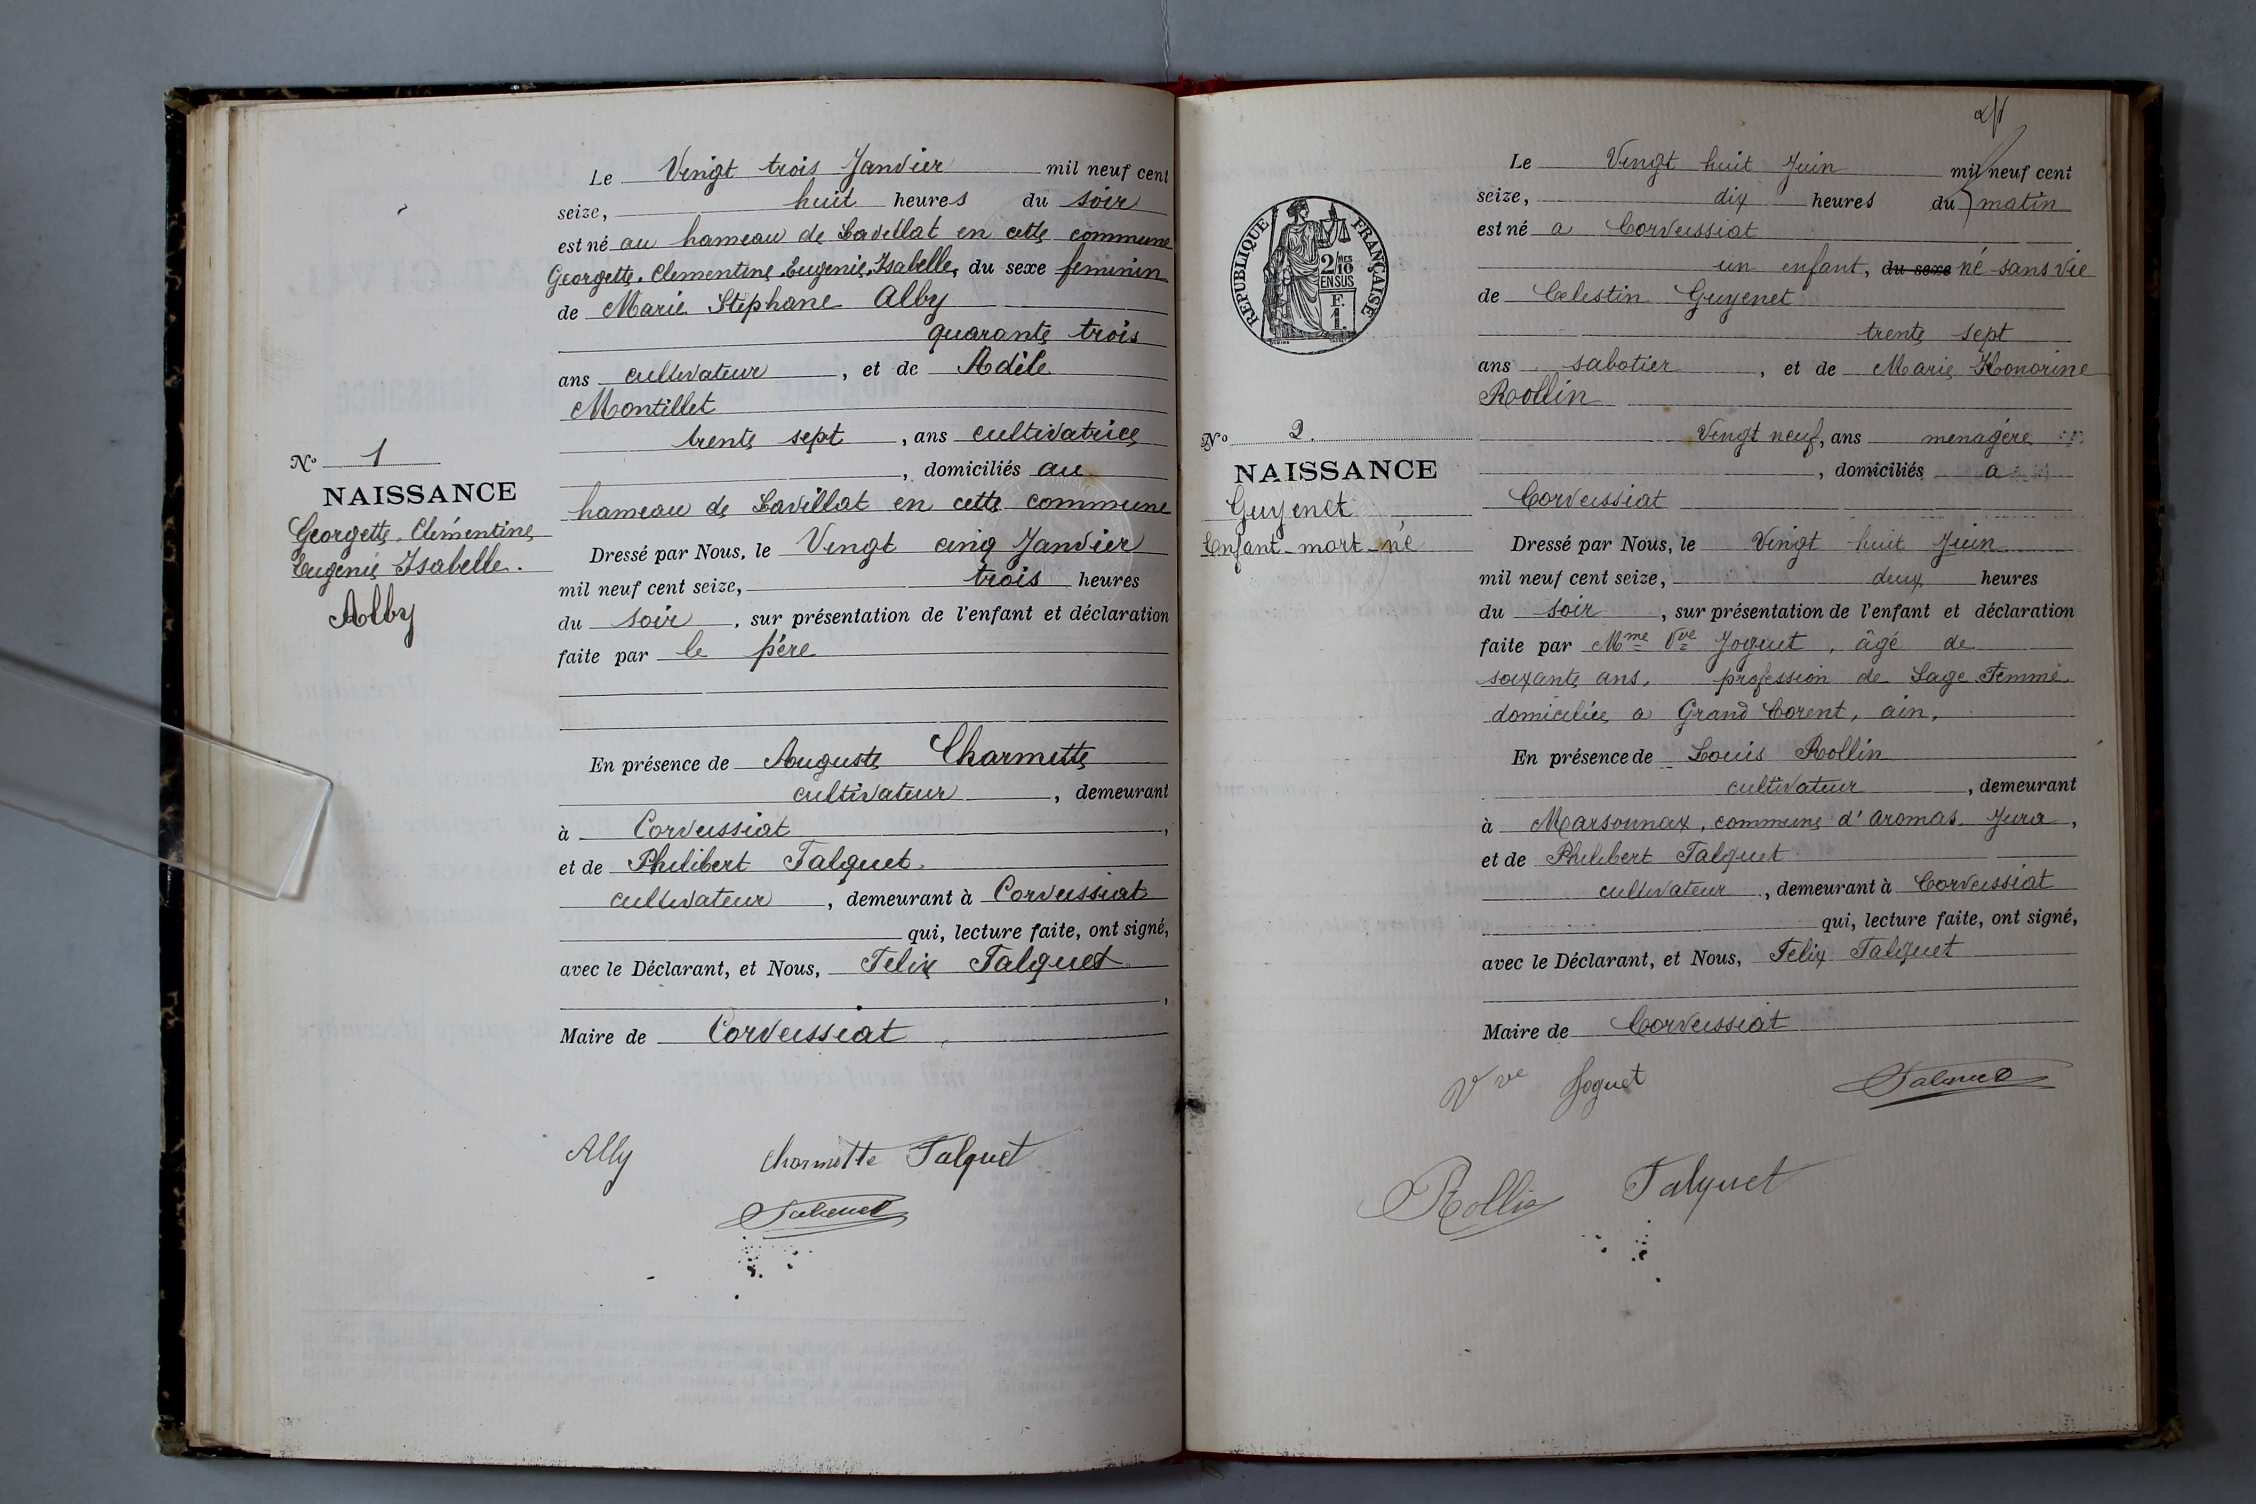 Le Vingt trois Janvier mil neuf cent
seize, huit heures du soir
est né au hameau de Lavillat en cette commune
Georgette, Clementine, Eugenie, Isabelle, du sexe feminin
de Marie Stephane Alby
quarante trois
ans cultivateur, et de Adèle
Montillet
trente sept, ans cultivatrice
, domiciliés au
hameau de Lavillat en cette commune
Dressé par Nous, le Vingt cinq Janvier
mil neuf cent seize, trois heures
du soir, sur présentation de l'enfant et déclaration
faite par le père
En présence de Auguste Charmette
cultivateur, demeurant
à Corveissiat,
et de Philibert Talguet
cultivateur, demeurant à Corveissiat
qui, lecture faite, ont signé,
avec le Déclarant, et Nous, Felix Talguet
,
Maire de Corveissiat
Alby Charmette Talguet
Talguet
No 1
NAISSANCE
Georgette, Clémentine
Eugenie Isabelle.
Alby
Le Vingt huit Juin mil neuf cent
seize, dix heures du matin
est né a Corveissiat
un enfant, du sexe né sans vie
de Celestin Guyenet
trente sept
ans sabotier, et de Marie Honorine
Rollin
Vingt neuf, ans menagère
, domiciliés a
Corveissiat
Dressé par Nous, le Vingt huit Juin
mil neuf cent seize, deux heures
du soir, sur présentation de l'enfant et déclaration
faite par Mme Vve Joguet, âgé de
soixante ans, profession de Sage Femme
domiciliée a Grand Corent, ain,
En présence de Louis Rollin
cultivateur, demeurant
à Marsonnax, commune d'aromas Jura,
et de Philibert Talguet
cultivateur, demeurant à Corveissiat
qui, lecture faite, ont signé,
avec le Déclarant, et Nous, Felix Talguet
Maire de Corveissiat
Vve Joguet Talguet
Rollin Talguet
RÉPUBLIQUE FRANÇAISE
2/10 MES
EN SUS
F.
1.
No 2.
NAISSANCE
Guyenet
Enfant mort-né